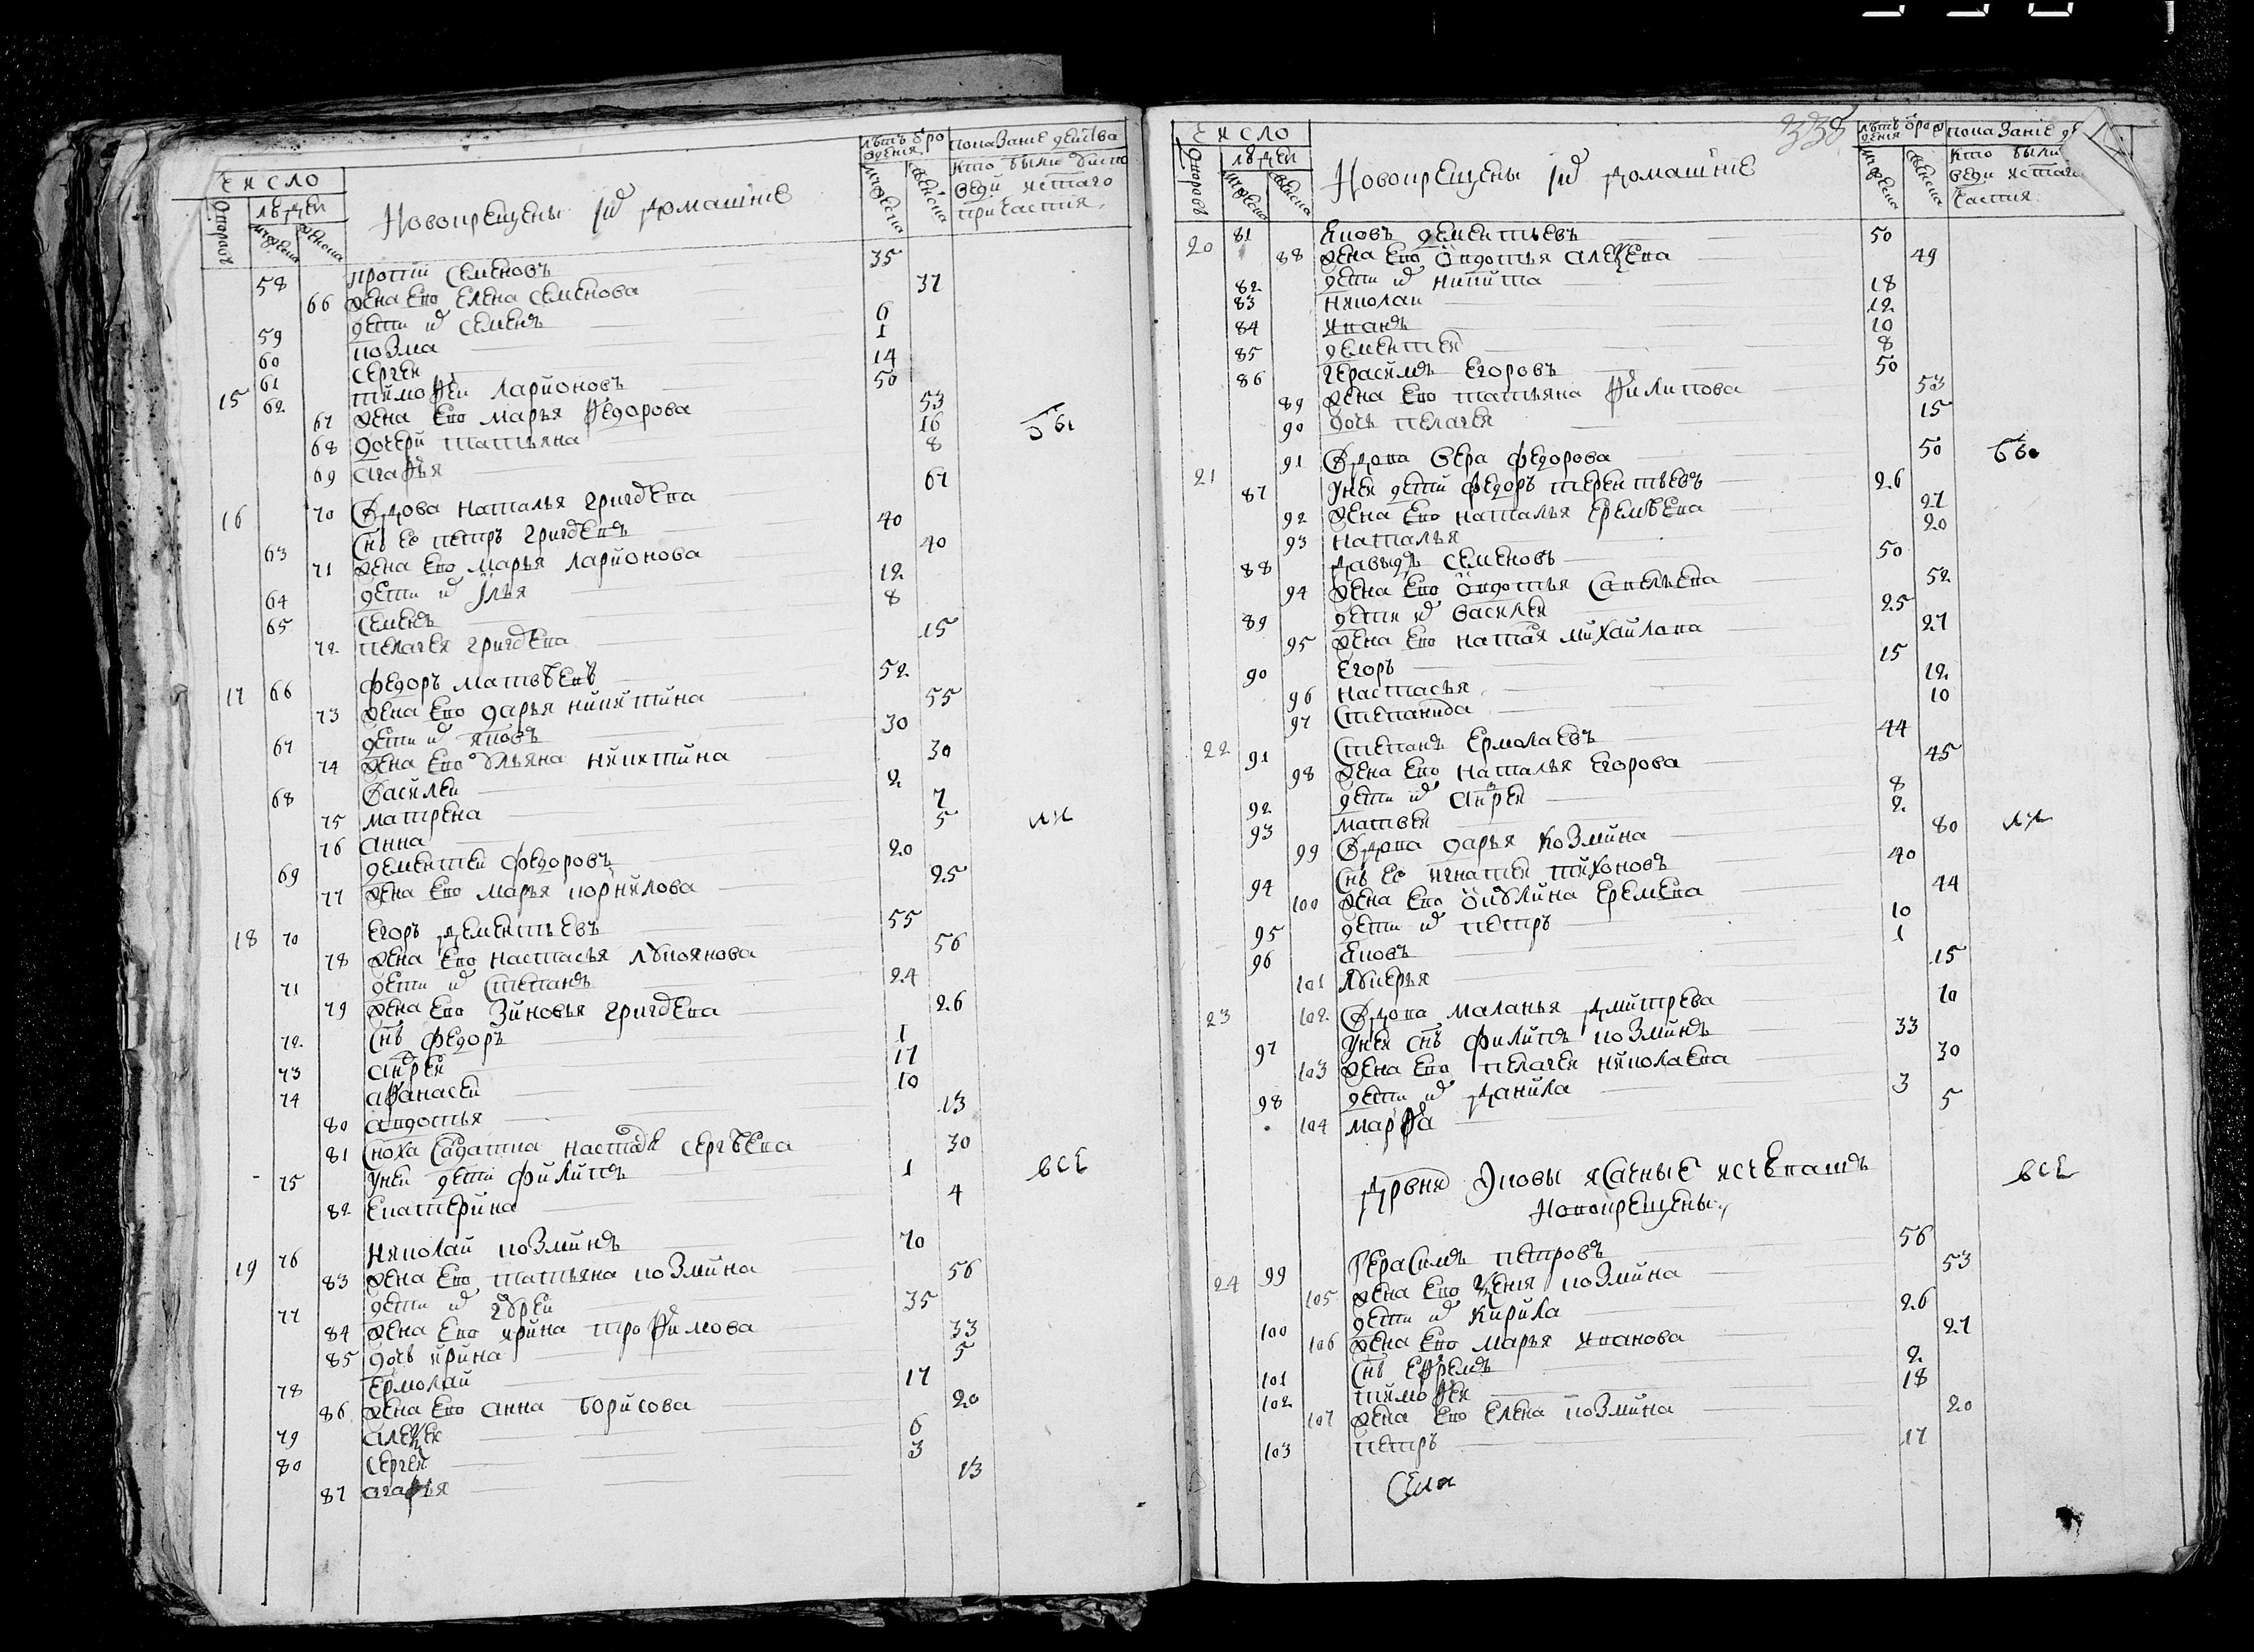 число
людей
дворовъ
мужеска
женска
Новокрещены и домашние
лѣтъ от рождения
мужеска
женска
показание действа
кто были у исповеди и стаго причастия
58 прокопи Семеновъ 35
66 жена ево Елена Семенова 37
59 дети их Семенъ 6
60 козма 1
61 сергеи 14
15 62 тимоѳеи Ларионовъ 50
67 жена ево марья ѳедорова 53
68 дочери татьяна 16
69 агаѳья 8
бы
16 70 Вдова наталья григорьева 67
63 Снъ ее петръ григорьевъ 40
71 жена ево марья ларионова 40
64 дети их Илья 12
65 Семенъ 8
72 пелагея григорьева 15
17 66 федоръ матвѣевъ 52
73 жена ево дарья никитина 55
67 дети их яковъ 30
74 жена ево ульяна никитина 30
68 Василеи 2
75 матрена 7
76 анна 5
ли
69 дементеи федоровъ 20
77 жена ево марья корнилова 25
18 70 Егоръ дементьевъ 55
78 жена ево настасья лукоянова 56
71 дети их Степанъ 24
79 жена ево Зиновья григорьева 26
72 Снъ федоръ 1
73 андреи 17
74 аѳанасеи 10
80 авдотья 13
81 Сноха Салдатка настасья сергѣева 30
75 у неи дети филипъ 1
все
82 Екатерина 4
19 76 николаи козминъ 70
83 жена ево татьяна козмина 56
77 дети их гуреи 35
84 жена ево ирина троѳимова 33
85 дочь ирина 5
78 Ермолаи 17
86 жена ево анна борисова 20
79 алеѯеи 6
80 сергеи 3
87 агафья 13
338
число
людей
дворовъ
мужеска
женска
Новокрещены и домашние
лѣтъ от рождения
мужеска
женска
показание
кто были
веди и стаго
частия
20 81 яковъ дементьевъ 50
88 жена ево овдотья алеѯева 49
82 дети их никита 18
83 николаи 12
84 иванъ 10
85 дементеи 8
86 герасимъ Егоровъ 50
89 жена ево татьяна ѳилипова 53
90 дочь пелагея 15
21 91 Вдова Вера федорова 50
бы
87 у неи дети федоръ терентьевъ 26
92 жена ево наталья Еремѣева 27
93 наталья 20
88 давыдъ семеновъ 50
94 жена ево овдотья Савельева 52
89 дети их василеи 25
95 жена ево наталья михаилова 27
90 Егоръ 15
96 настасья 12
97 Степанида 10
22 91 Степанъ Ермолаевъ 44
98 жена ево наталья Егорова 45
92 дети их андреи 8
93 матвеи 2
99 Вдова дарья козмина 80
ли
94 Снъ ее игнатеи тихоновъ 40
100 жена ево окулина Еремева 44
95 дети их петръ 10
96 яковъ 1
101 лукерья 15
23 102 Вдова маланья дмитрева 70
97 у неи снъ филипъ козминъ 33
103 жена ево пелагея николаева 30
98 дети их данила 3
104 марѳа 5
дрвня Яковы ясачные исчувашъ
Новокрещены
все
24 99 Герасимъ петровъ 56
105 жена ево Ѯения козмина 53
100 дети их кирила 26
106 жена ево марья иванова 27
101 Снъ Еѳремъ 2
102 тимоѳеи 18
107 жена ево Елена козмина 20
103 петръ 17
Села